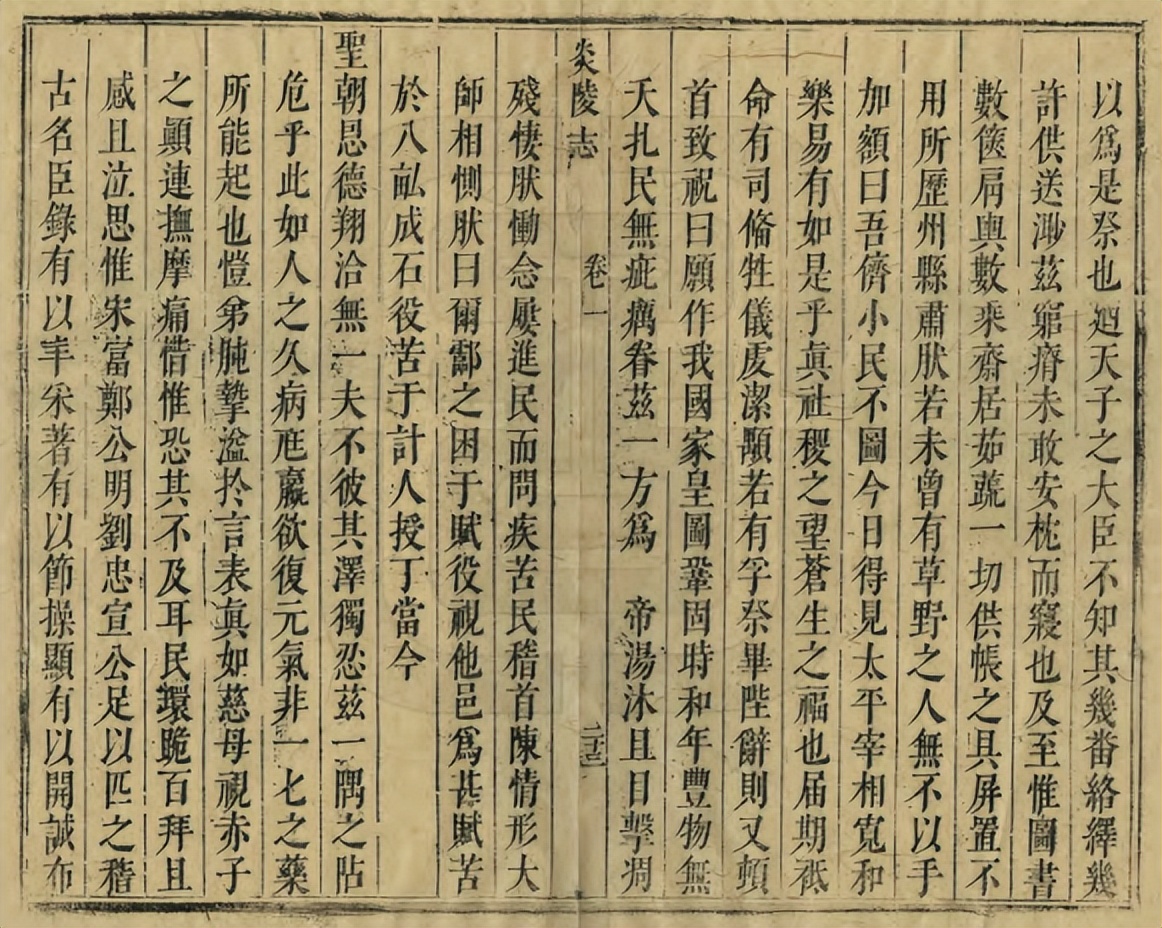 以爲是祭也廼天子之大臣不知其幾畨絡繹幾
許供送渺茲窮瘠未敢安枕而寢也及至惟圖書
數篋肩輿數乘齋居茹蔬一切供帳之具屏置不
用所歷州縣肅肰若未曾有草野之人無不以手
加額曰吾儕小民不圖今日得見太平宰相寬和
樂易有如是乎眞社稷之望蒼生之福也届期祗
命有司脩牲儀虔潔顒若有孚祭畢陛辭則又頓
首致祝曰願作我國家皇圖鞏固時和年豐物無
夭札民無疵癘眷茲一方爲 帝湯沐且目擊凋
炎陵志 卷一 二十三
殘悽肰慟念屢進民而問疾苦民稽首陳情形大
師相惻肰曰爾酃之困于賦役視他邑爲甚賦苦
於八畆成石役苦于計人授丁當今
聖朝恩德翔洽無一夫不彼其澤獨忍茲一隅之阽
危乎此如人之久病尪羸欲復元氣非一匕之藥
所能起也愷弟肫摯溢於言表眞如慈母視赤子
之顚連撫摩痛惜惟恐其不及耳民環跪百拜且
感且泣思惟宋富鄭公明劉忠宣公足以匹之稽
古名臣錄有以丰采著有以節操顯有以開誠布